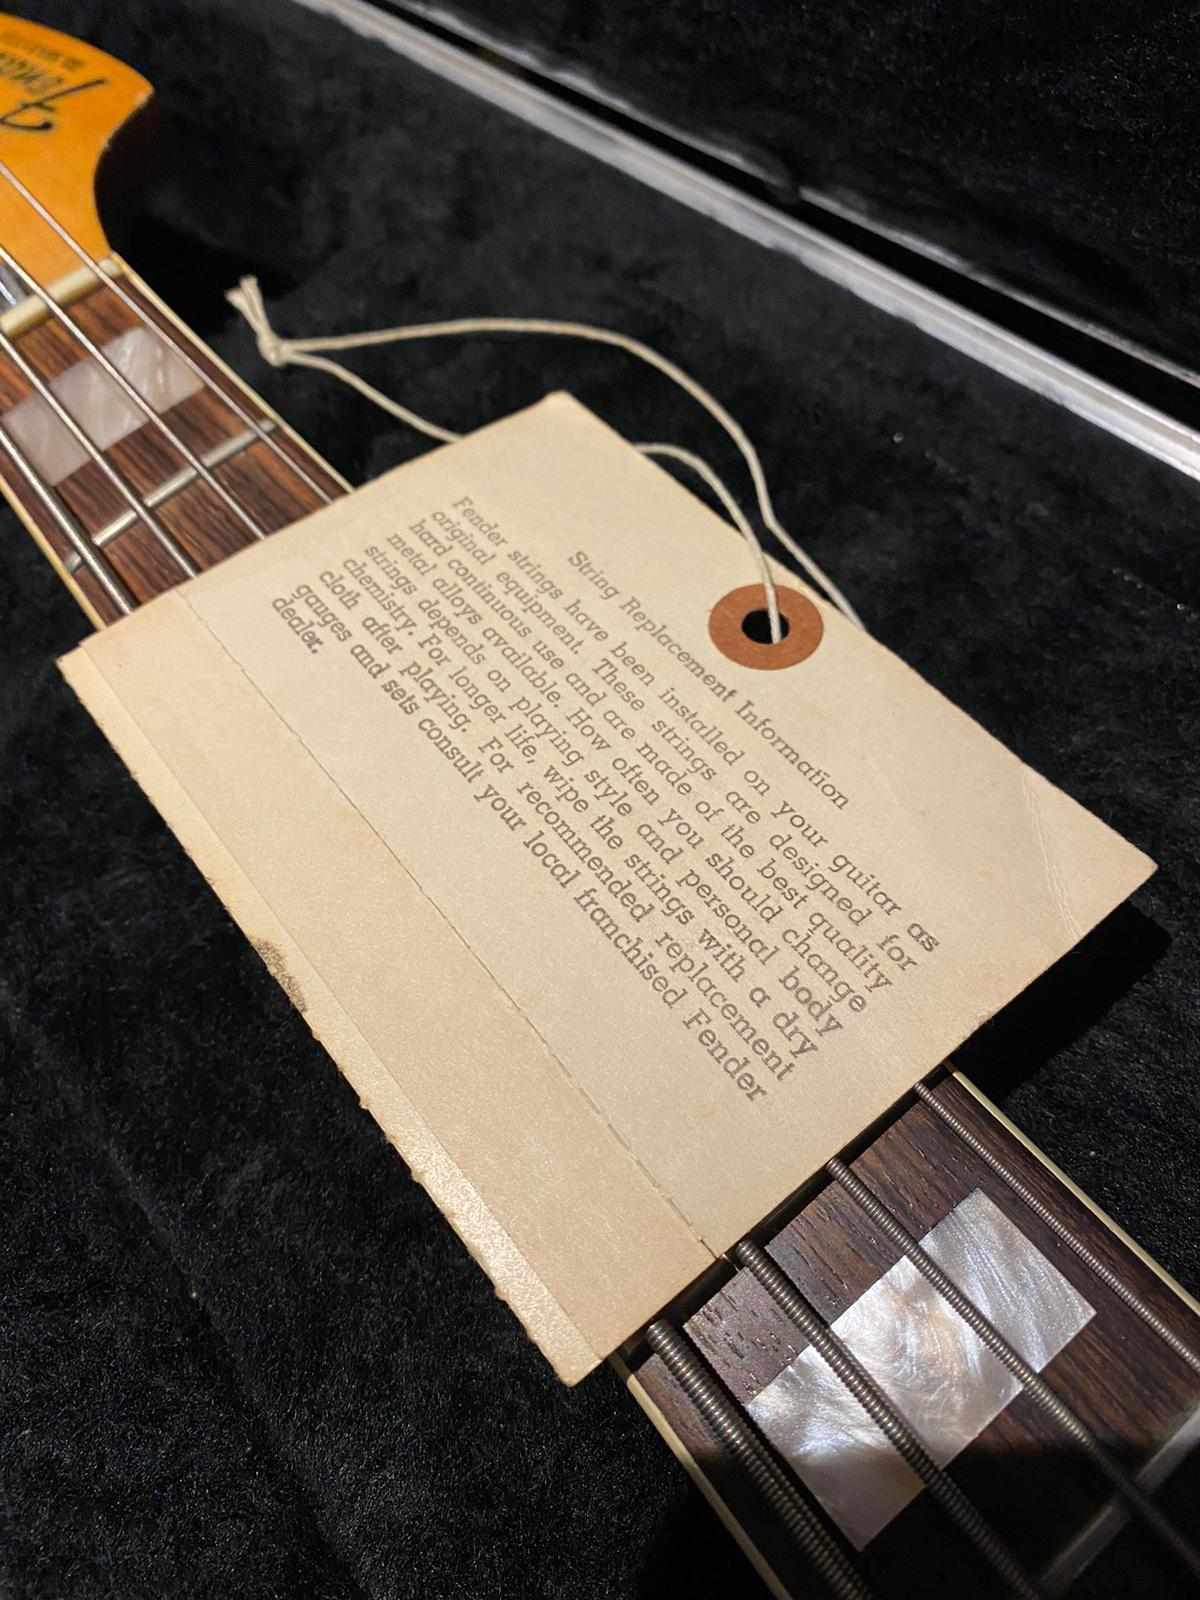 Fender
String Replacement Information
Fender strings have been installed on your guitar as
original equipment. These strings are designed for
hard continuous use and are made of the best quality
metal alloys available. How often you should change
strings depends on playing style and personal body
chemistry. For longer life, wipe the strings with a dry
cloth after playing. For recommended replacement
gauges and sets consult your local franchised Fender
dealer.